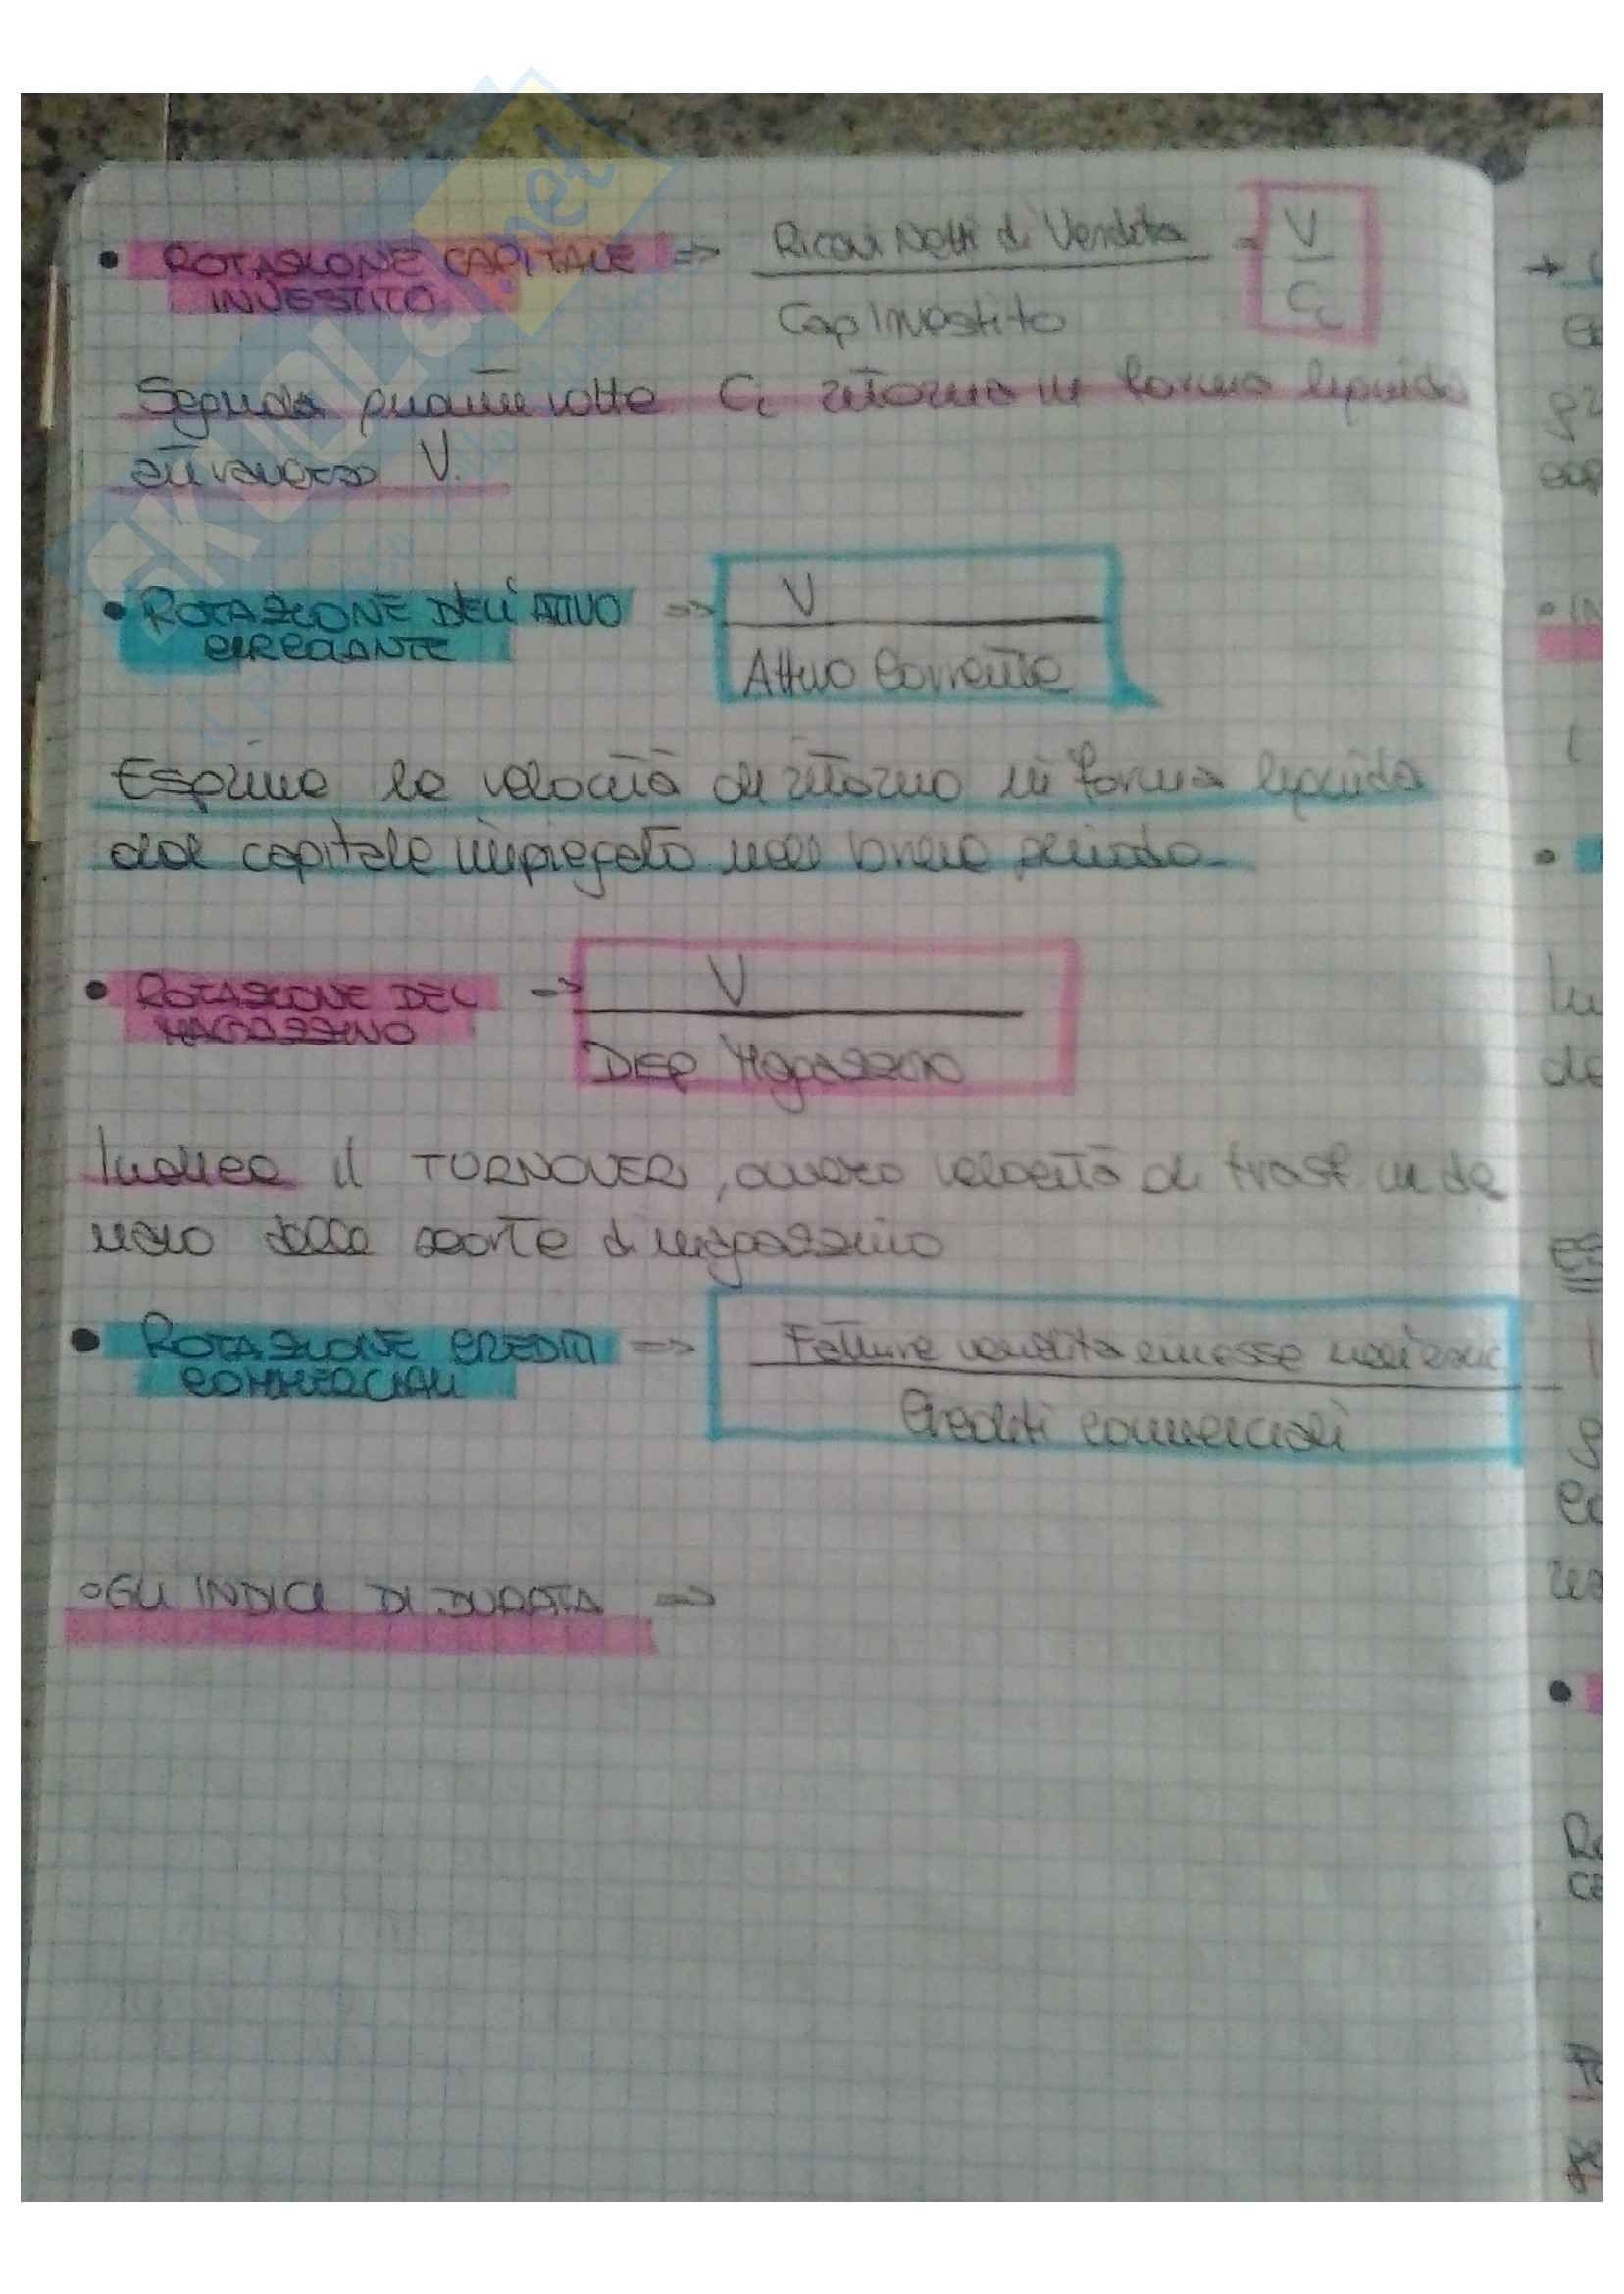 • ROTAZIONE CAPITALE => Ricavi Netti di Vendita = V
INVESTITO Cap Investito Ci
Segnala quante volte Ci ritorna in forma liquida
attraverso V.
• ROTAZIONE DELL'ATTIVO => V
CIRCOLANTE Attivo Corrente
Esprime la velocità di ritorno in forma liquida
del capitale impiegato nel breve periodo.
• ROTAZIONE DEL => V
MAGAZZINO Magazzino
Indica il TURNOVER, ovvero velocità di trasf. in de
naro delle scorte di magazzino
• ROTAZIONE CREDITI => Fatture vendita emesse
COMMERCIALI Crediti commerciali
◦ GLI INDICI DI DURATA =>
SKUOLA.net